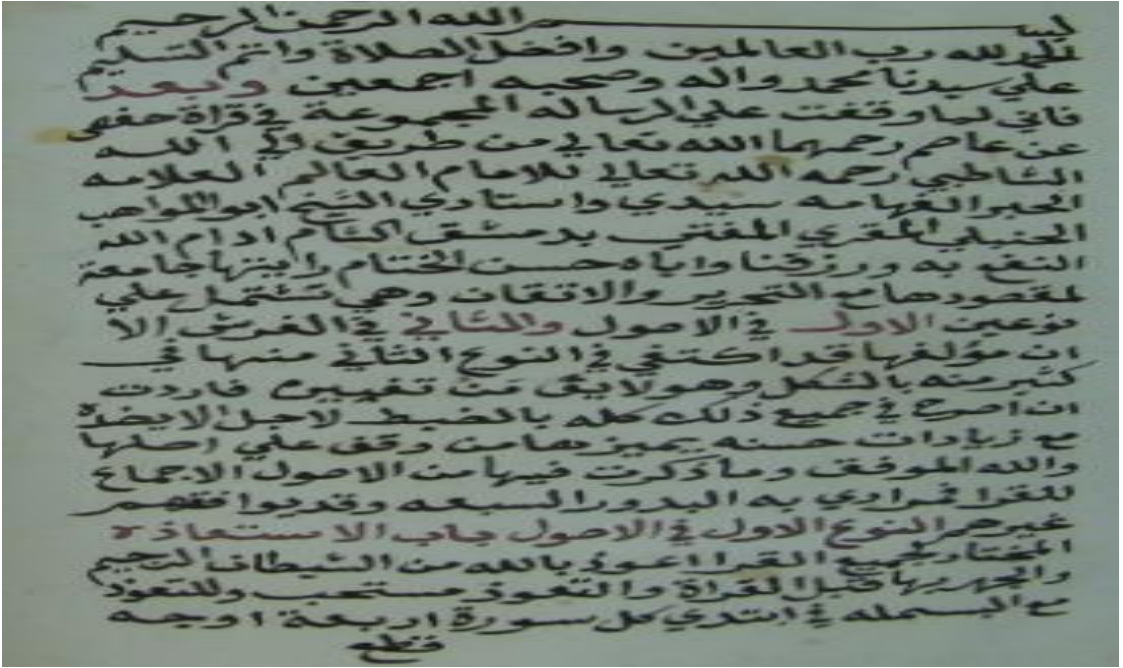 بسم الله الرحمن الرحيم
الحمد لله رب العالمين وافضل الصلاة واتم التسليم
علي سيدنا محمد واله وصحبه اجمعين وبعد
فاني لما وقفت علي الرساله المجموعة في قراة حفص
عن عاصم رحمهما الله تعالي من طريق
الشاطبي رحمه الله تعالي للامام العالم العلامه
الحبر الفهامه سيدي واستادي الشيخ ابو المواهب
الحنبلي المقري المفتي بدمشق الشام ادام الله
النفع به ورزقنا واياه حسن الختام رايتها جامعة
لمقصودها مع التحرير والاتقان وهي تشتمل علي
نوعين الاول في الاصول والثاني في الفرش الا
ان مؤلفها قد اكتفي في النوع الثاني منها في
كثير منه بالشكل وهو لا يبقى من تغييره فاردت
ان اصرح في جميع ذلك كله بالضبط لاجل الايضاح
مع زيادات حسنه يميزها من وقف علي اصلها
والله الموفق وما ذكرت فيها من الاصول الاجماع
للقرا فمرادي به البدور السبعه وقد يوافقهم
غيرهم النوع الاول في الاصول باب الاستعاذة
المختار لجميع القرا اعوذ بالله من الشيطان الرجيم
والجهر بها قبل القراة والتعوذ مستحب وللتعوذ
مع البسمله في ابتدي كل سورة اربعة اوجه
قطع